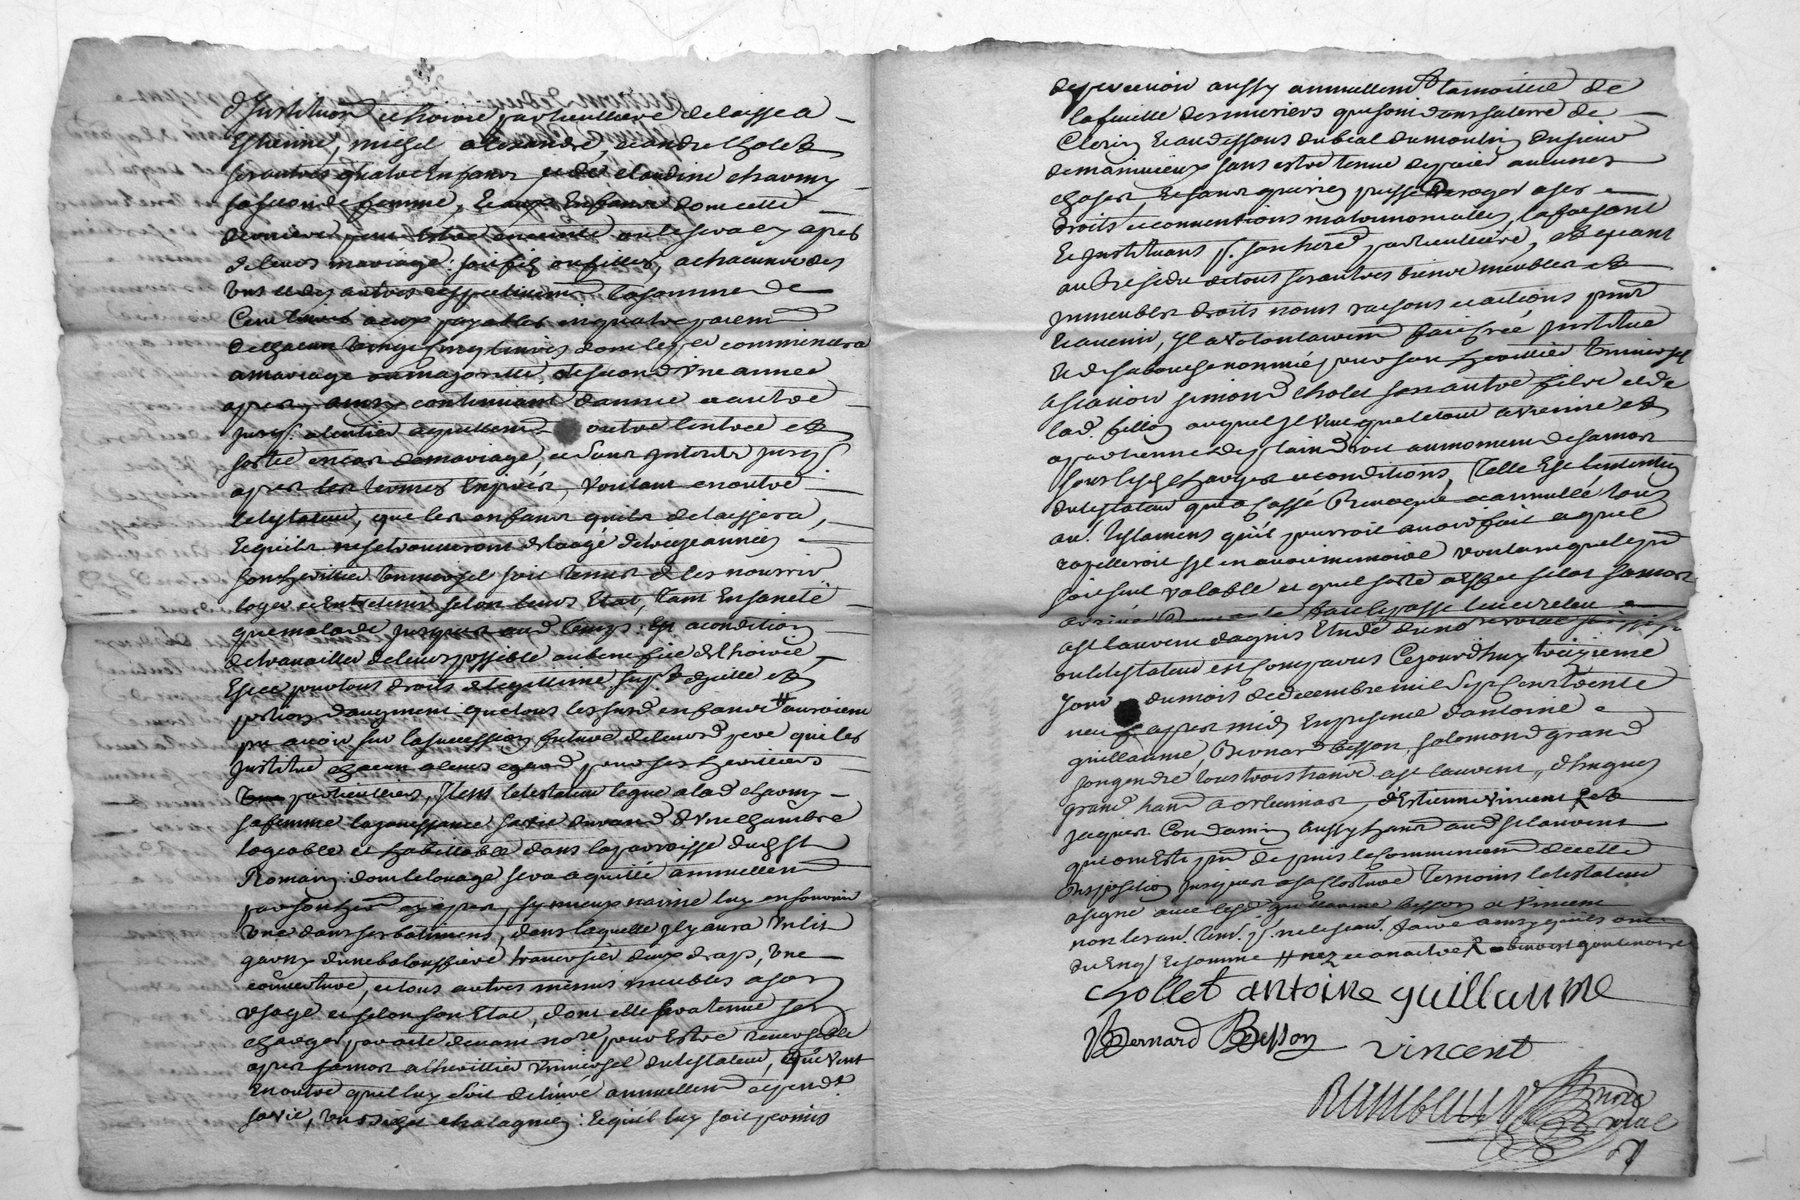 d'Institution et hoirie particulliere delaisse a
Estienne, miegel alexandre, et andre Cholet
ses autres quatre Enfans et de claudine charmy
sa segonde femme, Et aux Enfans dont cette
derniere peut estre enceinte ou le sera cy apres
de leurs mariage soit fils ou filles, a chacun des
uns et des autres respectivement la somme de
Cent livres a eux payables en quatre paiem
de chacun vingt cinq livres dont le per commencera
a mariage ou majorité, le segond une année
apres ainsy continuant d'année en autre
jusq. a lentier aquittem outre l'entrée et
sortie en cas de mariage, et sans interets jusq
apres les termes Expirés, voulant en outre
le testateur, que les enfans quil delaissera,
Et quils ne se trouveront de laage de treize années
son heritier universel soit tenus de les nourrir
loger et entretenir selon leurs Etat, tant En santé
que malade jusques aud temps a condition
de travailler de leurs possible au benefice de l'hoirie
Et ce pour tous droits de legitime sup
portion d'augment que tous lesusd enfans # auroient
pu avoir sur la succession future de leurd pere qui les
Institue chacun a leurs egard pour ses heritiers
particuliers, Item le testateur legue a lad charmy
sa femme la jouissance sa vie durand d'une chambre
logeable et habitable dans la parroisse dud St
Romain dont le louage sera aquitté annuellem
par son her cy apres, sy mieux naime luy en fournir
une dans ses batimens, dans laquelle il y aura un lit
garny d'une baloussiere traversier deux draps, une
couverture, et tous autres menus meubles a son
usage et selon son Etat, dont elle sera tenue se
charger par acte devant nore pour Estre reversible
apres sa mort a lheritier universel du testateur, que veut
En outre quil luy soit delivré annuellem a pend
sa vie, chatagnes Et quil luy soit permis
de percevoir aussy annuellem la moitié de
la feuille des muriers qui sont dans sa terre de
Clorin Et au dessous du beal du moulin du sieur
de manivieux sans estre tenue de paier aucunes
choses, Et sans que rien puisse deroger a ses
droits et conventions matrimonialles, la faisant
Et Instituant son here particuliere, et quant
au Residu de tous ses autres biens meubles et
jmmeubles droits noms raisons et actions pnts
et avenir, Il a volontairem fait creé Institue
Et de sa bouche nommé pour son heritier universel
a scavoir simond Cholet son autre fils et de
lad. fillon auquel Il veut que le tout avienne et
apartienne de plain droit au moment de sa mort
sous lesd charges et conditions, Telle Est lintention
du testateur qui a cassé Revoqué et annullé tous
au. Testamens qu'il pourroit avoir fait et quil
rapelleroit sil en avoit memoire voulant que le pnt
soit seul valable et quil sorte a Effet selon sa mort
fait et passé leu et releu
a st lauvent dagnis Etude du nore
ou le testateur est comparus Cejourd'huy treizieme
Jour du mois de decembre mil sept cent trente
neuf apres midy En presence d'antoine
guillaume, Bernard besson salomond grand
son gendre tous trois hants a st lauvent, d'hugues
grand hant a orlienas, d'Estienne vincent et
jaques Condamin aussy hants aud st lauvent
qui ont Esté pnts depuis le commencem de cette
disposition jusques a sa closture Temoins le testateur
a signé avec lesd guillaume besson et vincent
non les au. tem. jl. ne le scav. faire ainsy quils ont
dit Enq Et somme # nez et a naitre
Chollet antoine guillaume
Bernard Besson vincent
nore
roial